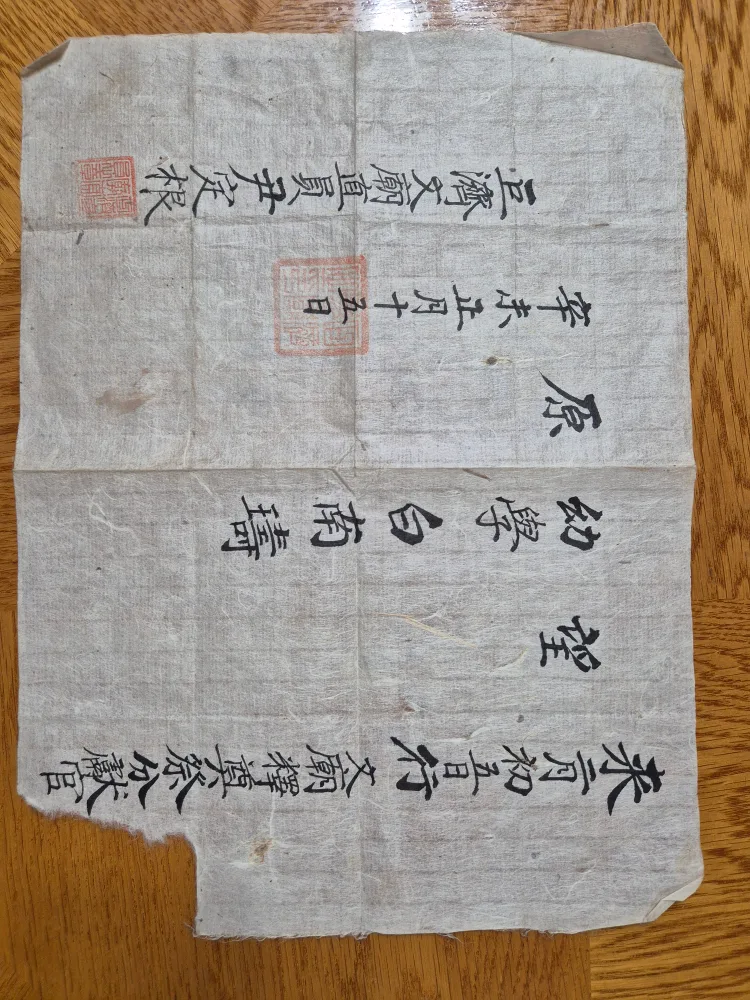 来二月初五日行 文廟釋奠祭分獻官
望
幼學白南璹
原
辛未正月十五日
巨濟文廟直員尹定根